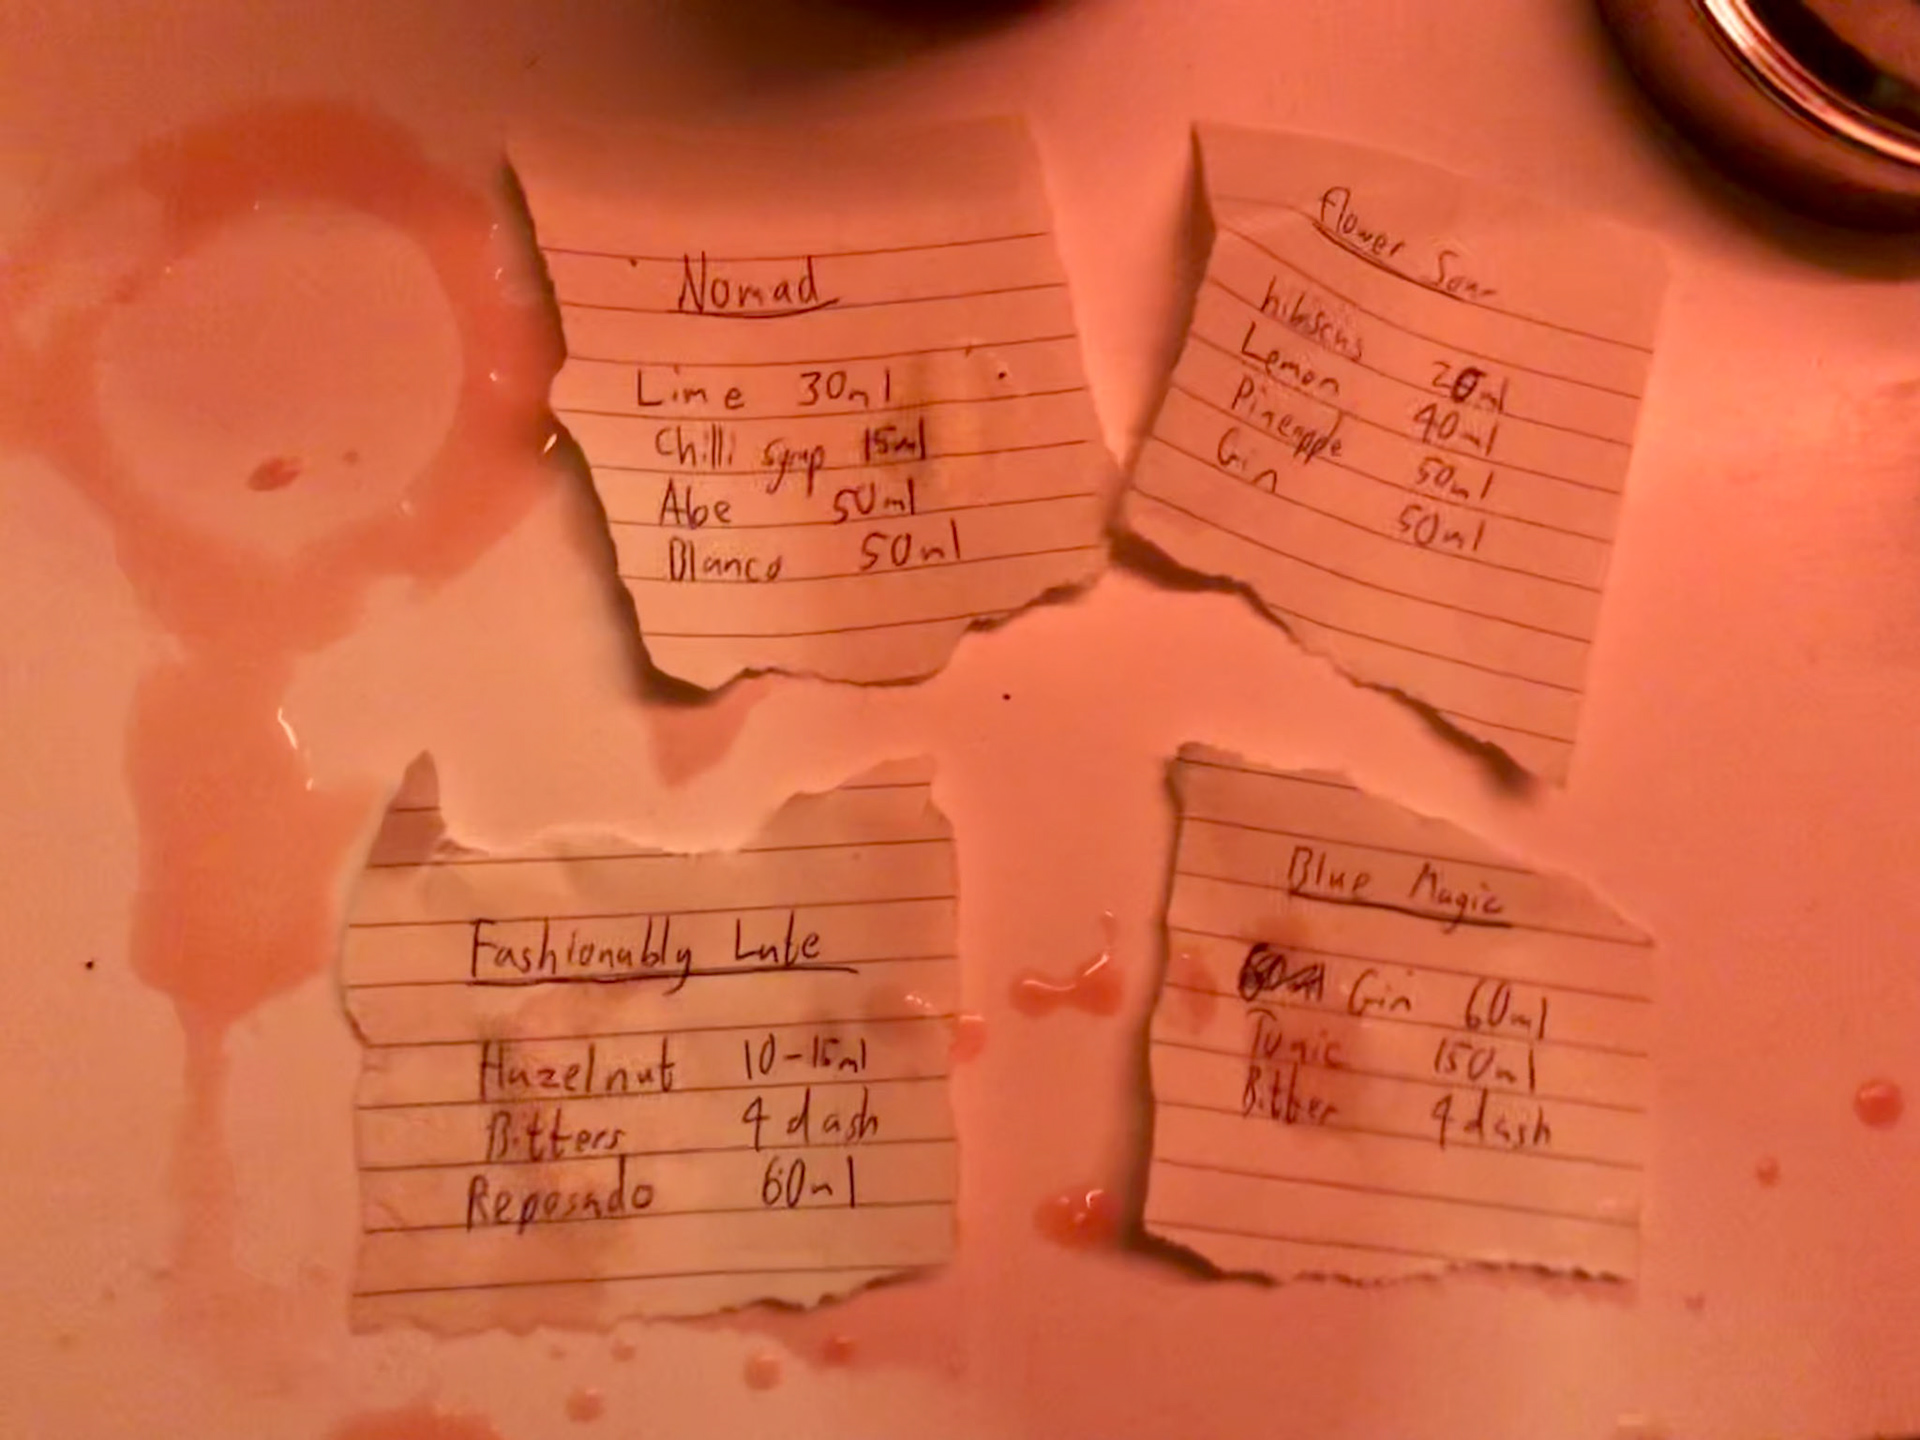 Nomad
Lime 30ml
Chilli syrup 15ml
Aloe 50ml
Blanco 50ml
Flower Sour
hibiscus 20ml
Lemon 40ml
Pineapple 50ml
Gin 50ml
Fashionably Late
Hazelnut 10-15ml
Bitters 4 dash
Reposado 60ml
Blue Magic
Gin 60ml
Tonic 150ml
Bitter 4 dash